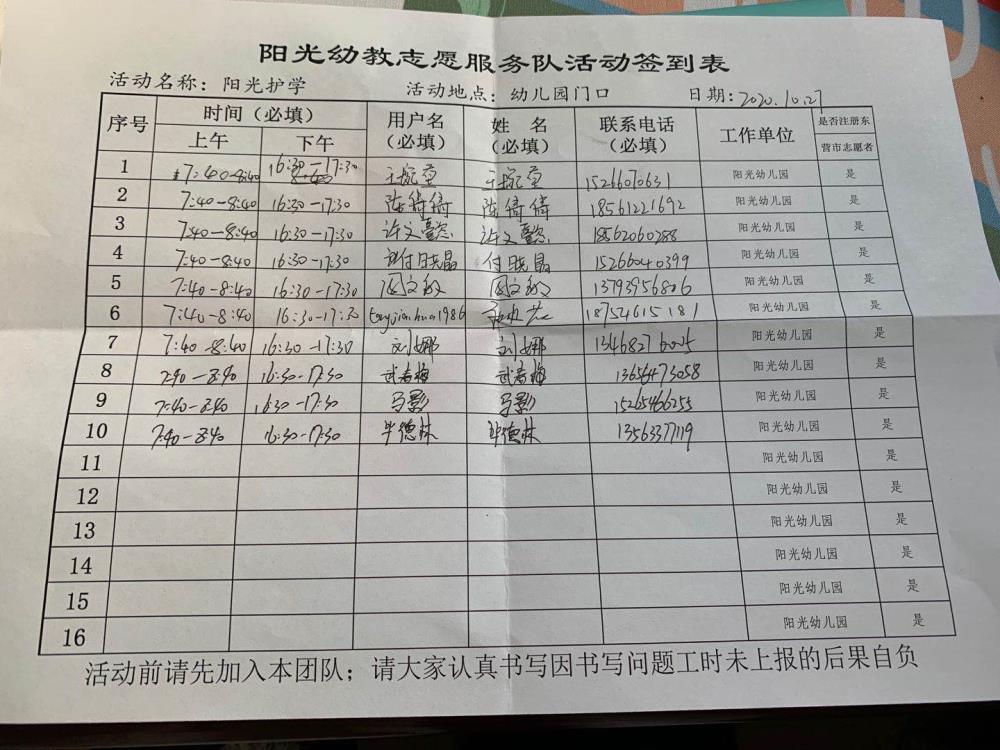 阳光幼教志愿服务队活动签到表
活动名称：阳光护学 活动地点：幼儿园门口 日期：2020.10.27
序号 时间（必填） 用户名（必填） 姓 名（必填） 联系电话（必填） 工作单位 是否注册东营市志愿者
上午 下午
1 7:40-8:40 16:30-17:30 15266070631 阳光幼儿园 是
2 7:40-8:40 16:30-17:30 陈倩倩 陈倩倩 18561221692 阳光幼儿园 是
3 7:40-8:40 16:30-17:30 许文懿 许文懿 18562060288 阳光幼儿园 是
4 7:40-8:40 16:30-17:30 付晓晶 付晓晶 15266040399 阳光幼儿园 是
5 7:40-8:40 16:30-17:30 13793956806 阳光幼儿园 是
6 7:40-8:40 16:30-17:30 18752461518 1 阳光幼儿园 是
7 7:40-8:40 16:30-17:30 刘娜 刘娜 阳光幼儿园 是
8 7:40-8:40 16:30-17:30 武春梅 武春梅 13656473058 阳光幼儿园 是
9 7:40-8:40 16:30-17:30 马影 马影 15265466255 阳光幼儿园 是
10 7:40-8:40 16:30-17:30 毕德林 毕德林 13563377119 阳光幼儿园 是
11 阳光幼儿园 是
12 阳光幼儿园 是
13 阳光幼儿园 是
14 阳光幼儿园 是
15 阳光幼儿园 是
16 阳光幼儿园 是
活动前请先加入本团队；请大家认真书写因书写问题工时未上报的后果自负